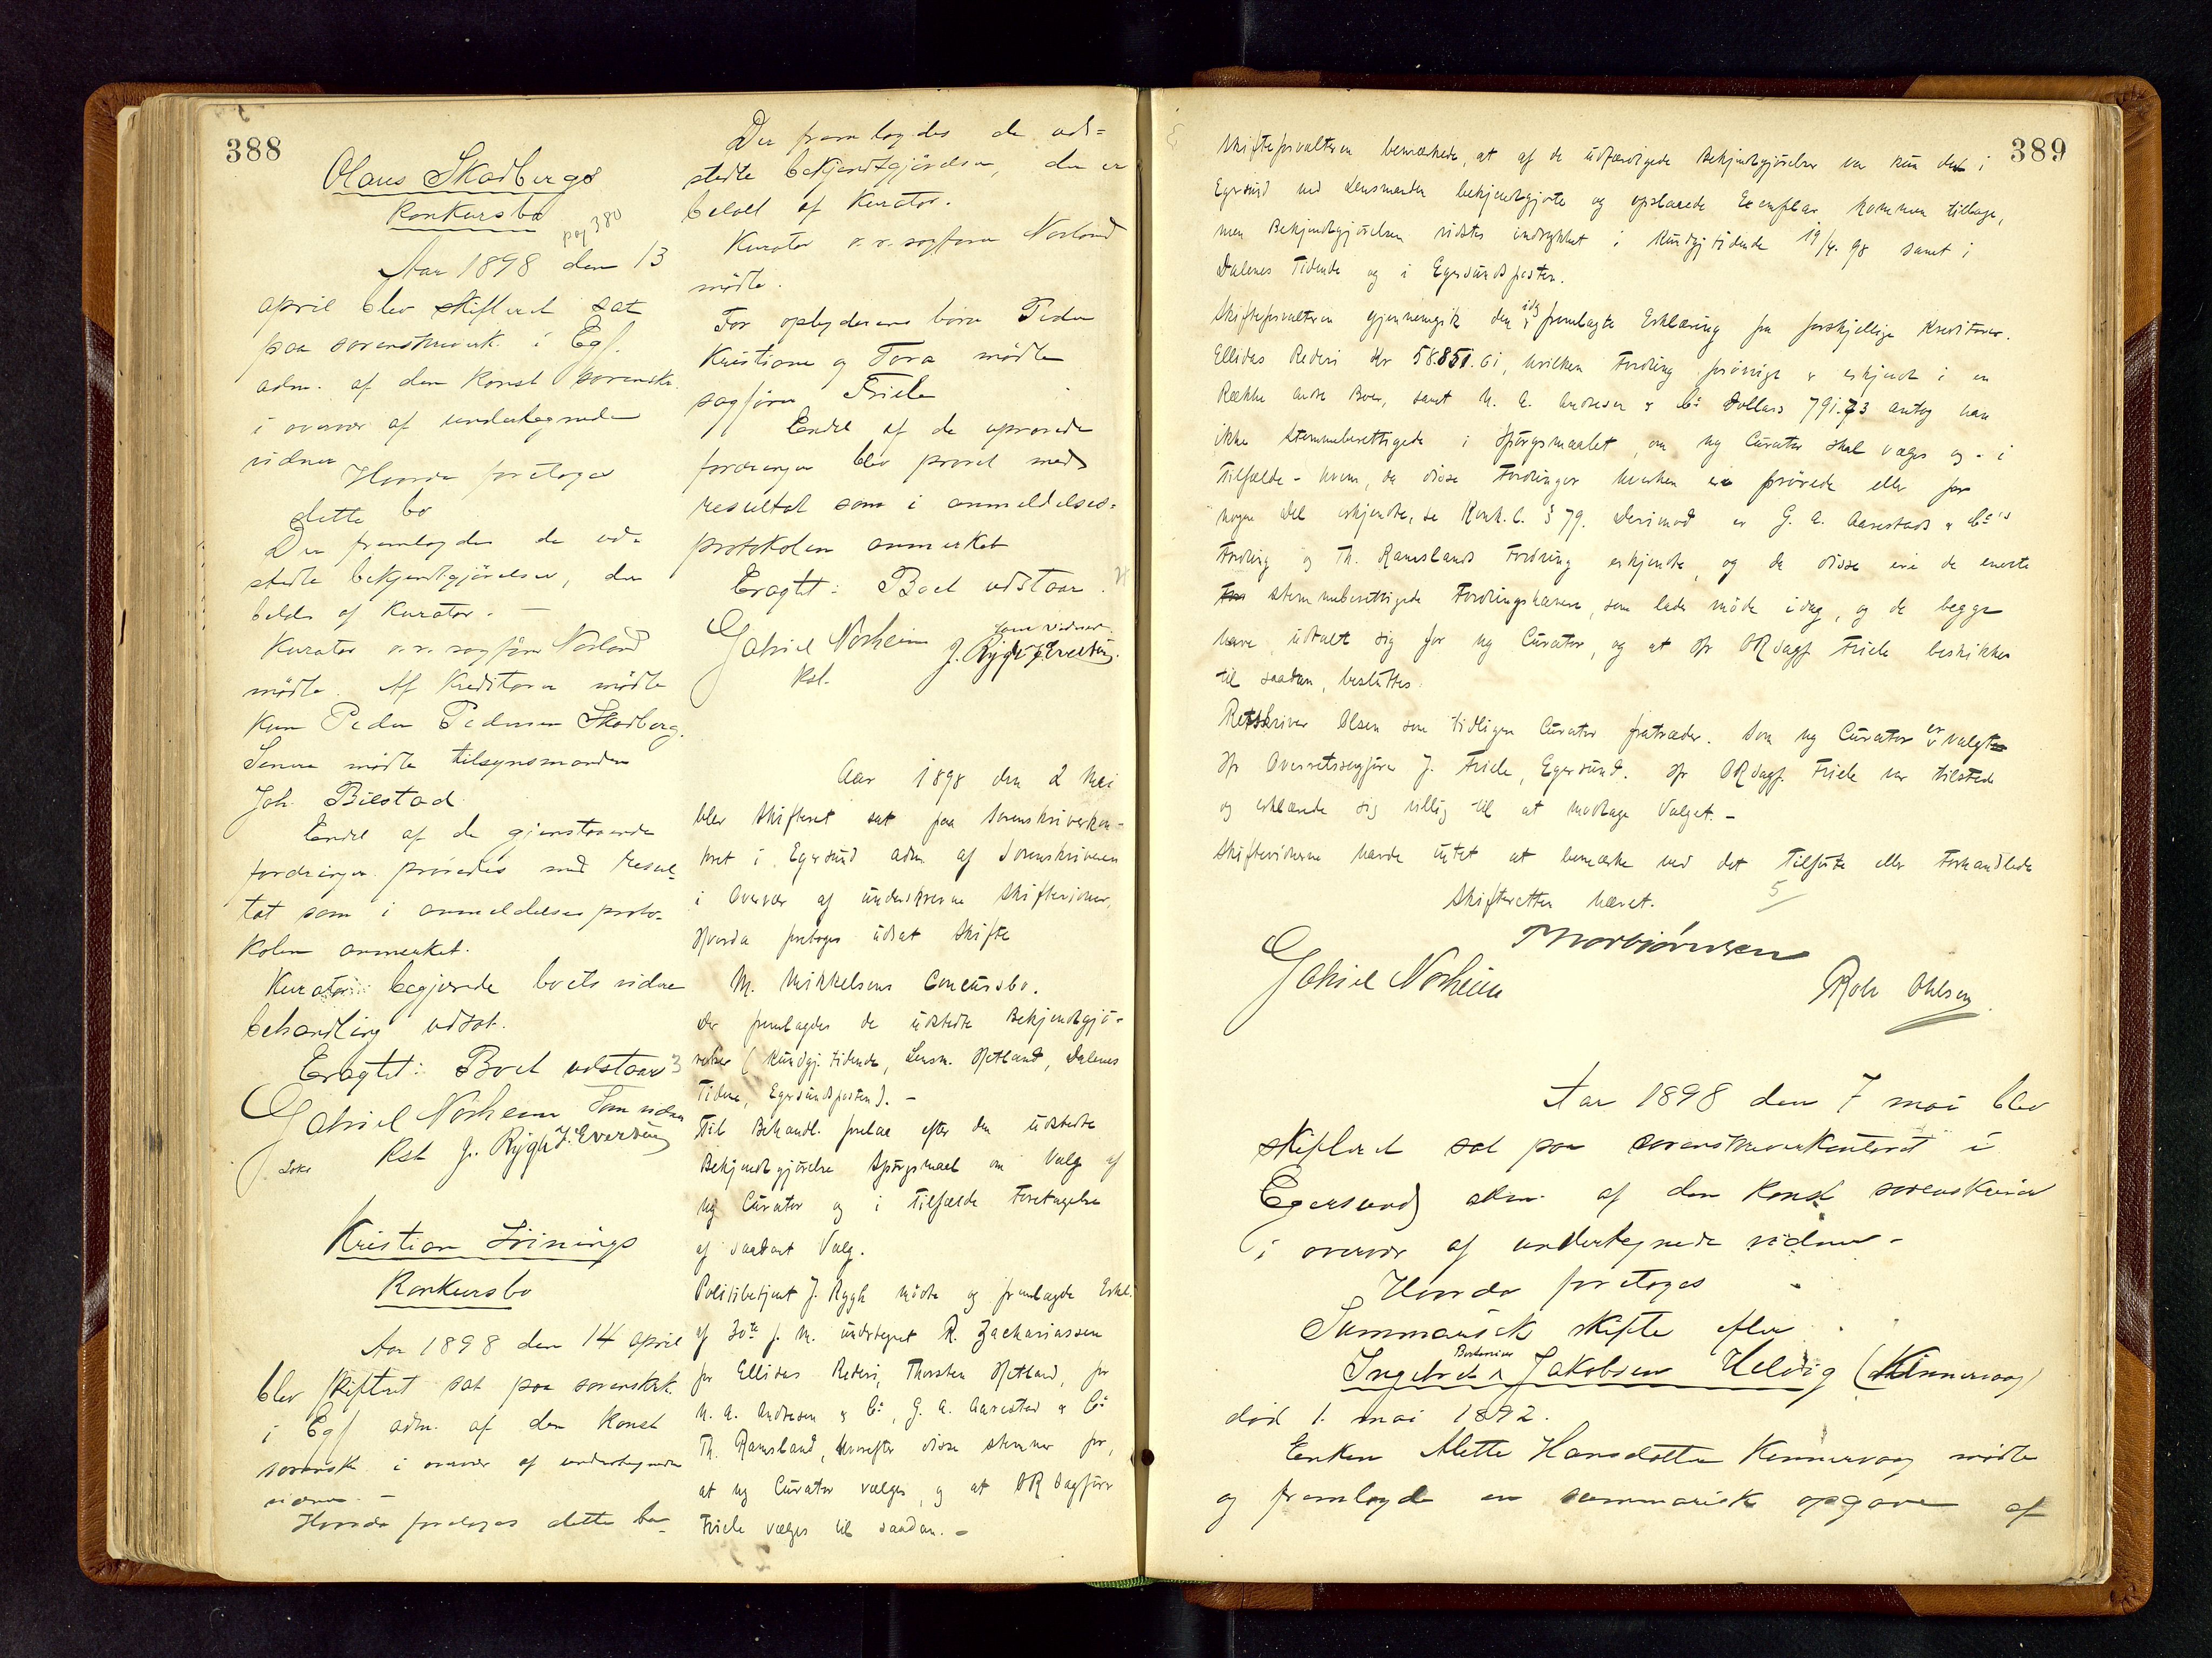 388
Olaus Skadbergs
Konkursbo
pag 380
Aar 1898 den 13
april blev skifteret sat
paa sorenskriverk. i Egs.
adm. af den konst sorenskr.
i overvær af undertegnede
vidner
Hvorda foretoges
dette bo
Der fremlagdes de ud-
stedte bekjendtgjørelser, der
beholdt af Kurator. —
Kurator o.r. sagfører Norland
mødte. Af Kreditorer mødte
kun Peder Pedersen Skadberg.
Senere mødte tilsynsmanden
Joh. Bilstad.
Endel af de gjenstaaende
fordringer prøvedes med resul-
tat som i anmeldelsesproto-
kolen anmerket.
Kurator begjærede boets videre
behandling udsat.
Eragtet: Boet udstaar
Gabriel Norheim Som vidner
Kst. J. Rygh J. Evertsen
Kristian Irinings
Konkursbo
Aar 1898 den 14 april
blev skifteret sat paa sorenskrk.
i Egs adm. af den konst
sorenskr. i overvær af undertegnede
vidner. —
Hvorda foretoges dette bo
Der fremlagdes de ud-
stedte bekjendtgjørelser, der er
beholt af Kurator.
Kurator o.r. sagfører Norland
mødte.
For opbyderens børn Peder
Kristiane og Tora mødte
sagfører Friele
Endel af de uprøvede
fordringer blev prøvet med
resultat som i anmeldelses-
protokolen anmerket
Eragtet: Boet udstaar.
som vidner
Gabriel Norheim J. Rygh J. Evertsen.
Kst.
Aar 1898 den 2 Mai
blev Skifteret sat paa Sorenskriverkon-
toret i Egersund adm af Sorenskriveren
i Overvær af underskrevne Skiftevidner,
Hvorda foretoges udsat Skifte
M. Mikkelsens Concursbo.
Der fremlagdes de udstedte Bekjendtgjø-
relser (Kundgj. tidende, Lensm. Hetland, Dalenes
Tidene, Egersundsposten). —
Til Behandl. forelaa efter den udstedte
Bekjendtgjørelse Spørgsmaal om Valg af
ny Curator og i Tilfælde Foretagelse
af saadant Valg.
Politibetjent J. Rygh mødte og fremlagde Erkl.
af 30te f. M. undertegnet R. Zachariassen
for Ellidas Rederi, Thorsten Hetland, for
N. A. Andresen & Co, G. A. Aarestad & Co
Th. Ramsland, hvorefter disse stemmer for,
at ny Curator vælges, og at OR Sagfører
Friele vælges til saadan. —
389
Skifteforvalteren bemærkede, at af de udfærdigede Bekjendtgjørelser var kun det i
Egersund ved Lensmanden bekjendtgjorte og opslaaede Exemplar kommen tilbage,
men Bekjendtgjørelsen vidstes indrykket i Kundgj tidende 19/4. 98 samt i
Dalenes Tidende og i Egersundsposten.
Skifteforvalteren gjennemgik den idag fremlagte Erklæring fra forskjellige Kreditorer.
Ellidas Rederi Kr 58.851.61, hvilken Fordring forøvrigt er erkjendt i en
Række andre Boer, samt N. A. Andresen & Co Dollars 791.73 antog han
ikke Stemmeberettigede i Spørgsmaalet, om ny Curator skal vælges og - i
Tilfælde - hvem, da disse Fordringer hverken ere prøvede eller for
nogen Del erkjendte, se Konk. l. § 79. Derimod er G. A. Aarestads & Co's
Fordring og Th. Ramslands Fordring erkjendte, og da disse ere de eneste
For stemmeberettigede Fordringshavere, som lader møde idag, og de begge
have udtalt sig for ny Curator, og at Hr ORsagf Friele beskikkes
til saadan, besluttes:
Retskriver Olsen som tidligere Curator fratræder. Som ny Curator er valgt
Hr Overretssagfører J. Friele, Egersund. Hr ORsagf. Friele var tilstede
og erklærede sig villig til at modtage Valget. —
Skiftevidnerne havde intet at bemærke ved det Tilførte eller Forhandlede
Skifteretten hævet.
5/
Thorbjørnsen
Gabriel Norheim
Rolv Ohlsen.
Aar 1898 den 7 mai blev
skifteret sat paa sorenskriverkontoret i
Egersund adm. af den konst sorenskriver
i overvær af undertegnede vidner -
Hvorda foretoges
Summarisk skifte efter
Ingebret Jakobsen Helvig (Kinnervaag)
død 1. mai 1892.
Enken Mette Hansdatter Kinnervaag mødte
og fremlagde en summarisk opgave af